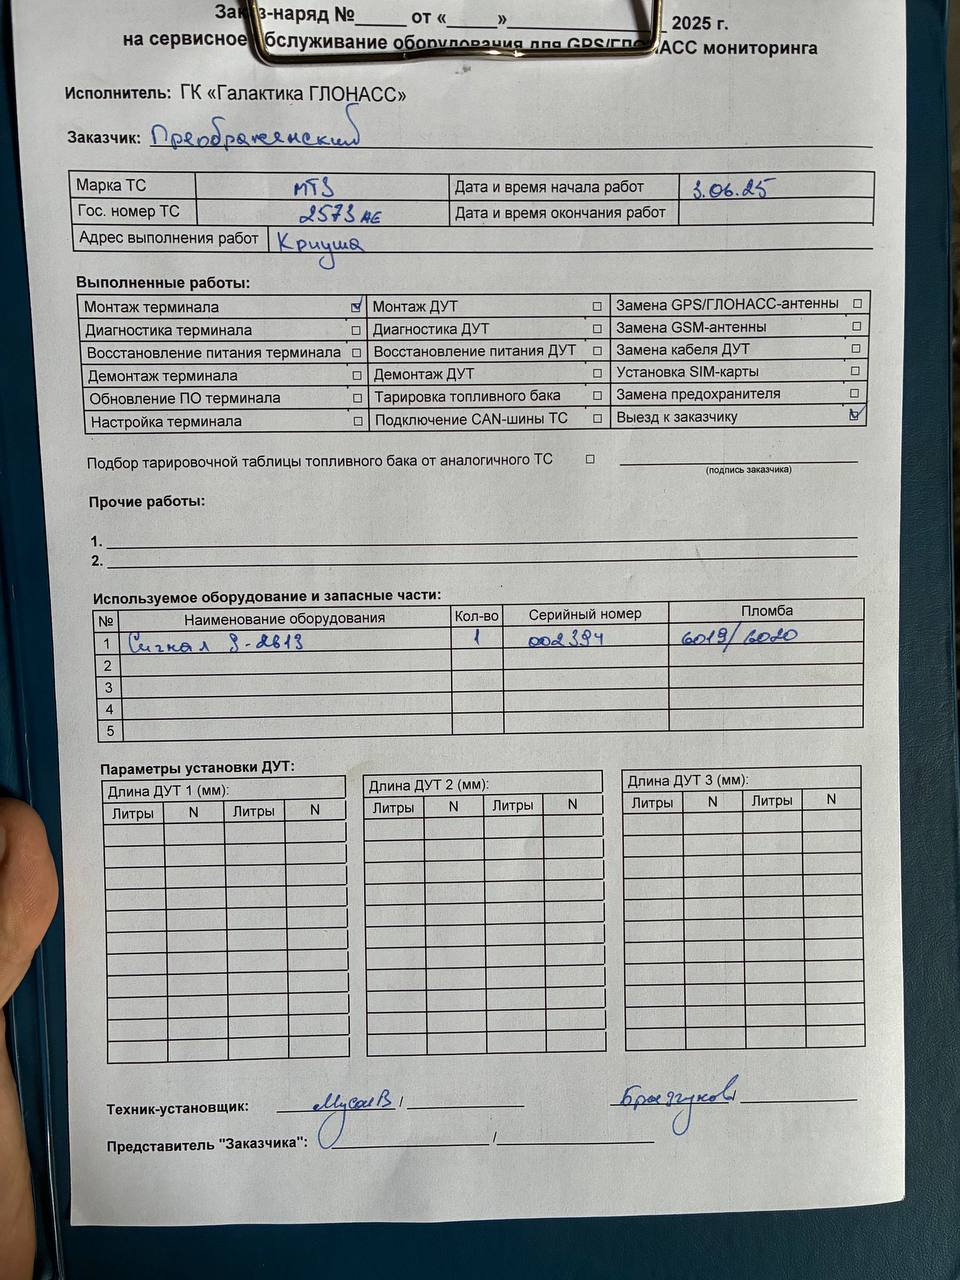 Заказ-наряд №_____ от «_____»_______________ 2025 г.
на сервисное обслуживание оборудования для GPS/ГЛОНАСС мониторинга
Исполнитель: ГК «Галактика ГЛОНАСС»
Заказчик: Преображенский
Марка ТС МТЗ Дата и время начала работ 3.06.25
Гос. номер ТС 2573 АЕ Дата и время окончания работ
Адрес выполнения работ Криуша
Выполненные работы:
Монтаж терминала ☑ Монтаж ДУТ ☐ Замена GPS/ГЛОНАСС-антенны ☐
Диагностика терминала ☐ Диагностика ДУТ ☐ Замена GSM-антенны ☐
Восстановление питания терминала ☐ Восстановление питания ДУТ ☐ Замена кабеля ДУТ ☐
Демонтаж терминала ☐ Демонтаж ДУТ ☐ Установка SIM-карты ☐
Обновление ПО терминала ☐ Тарировка топливного бака ☐ Замена предохранителя ☐
Настройка терминала ☐ Подключение CAN-шины ТС ☐ Выезд к заказчику ☑
Подбор тарировочной таблицы топливного бака от аналогичного ТС ☐
(подпись заказчика)
Прочие работы:
1.
2.
Используемое оборудование и запасные части:
№ Наименование оборудования Кол-во Серийный номер Пломба
1 Сигнал S-2613 1 002394 6019/6020
2
3
4
5
Параметры установки ДУТ:
Длина ДУТ 1 (мм): Длина ДУТ 2 (мм): Длина ДУТ 3 (мм):
Литры N Литры N Литры N Литры N Литры N Литры N
Техник-установщик: Мусаев /
Представитель "Заказчика": /